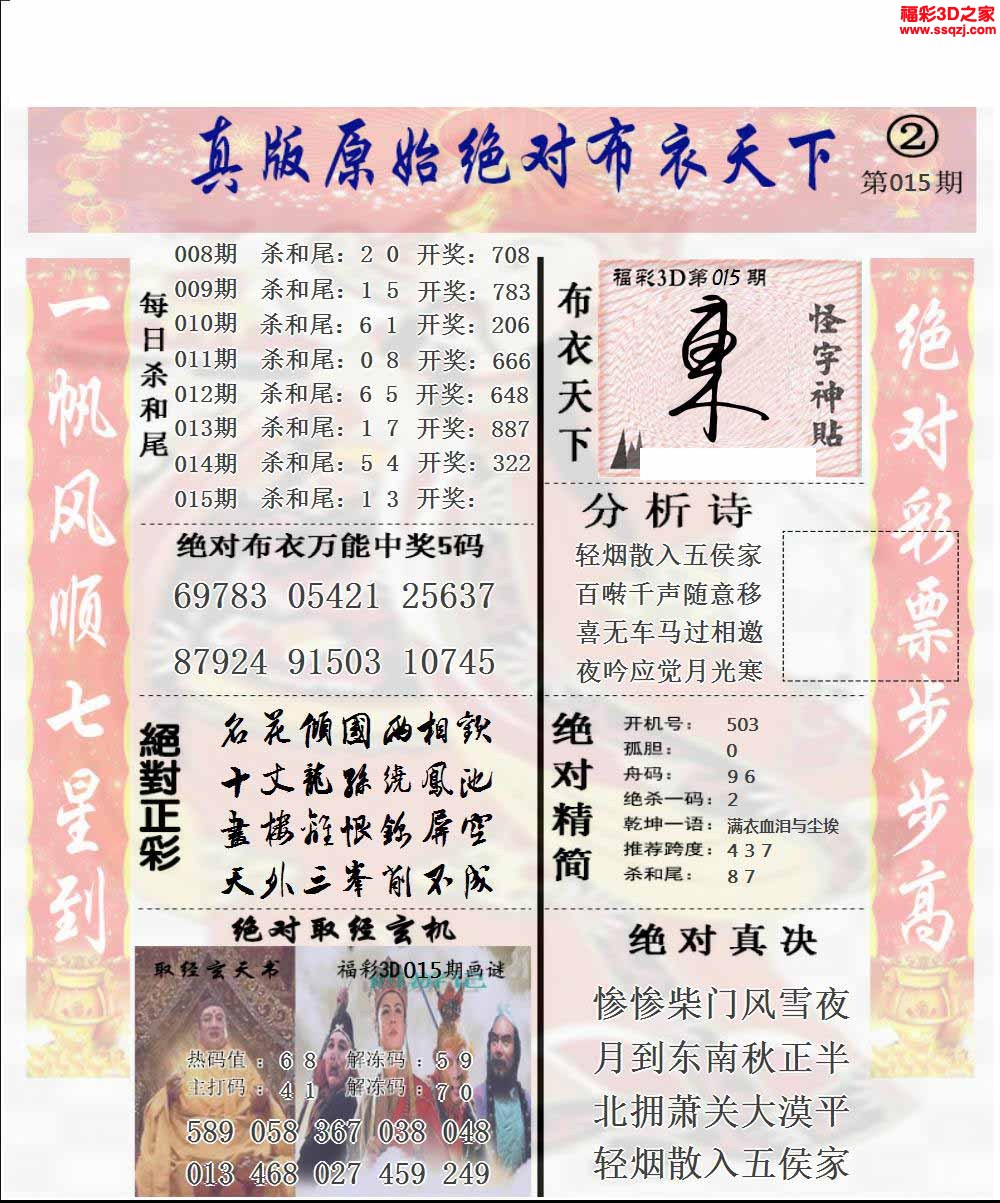 福彩3D之家
www.ssqzj.com
真版原始绝对布衣天下
②
第015期
一帆风顺七星到
每日杀和尾
008期 杀和尾：2 0 开奖：708
009期 杀和尾：1 5 开奖：783
010期 杀和尾：6 1 开奖：206
011期 杀和尾：0 8 开奖：666
012期 杀和尾：6 5 开奖：648
013期 杀和尾：1 7 开奖：887
014期 杀和尾：5 4 开奖：322
015期 杀和尾：1 3 开奖：
绝对布衣万能中奖5码
69783 05421 25637
87924 91503 10745
絕對正彩
名花傾國兩相歡
十丈龍孫繞鳳池
畫樓離恨錦屏空
天外三峯削不成
绝对取经玄机
取经玄天书
福彩3D015期画谜
热码值：6 8 解冻码：5 9
主打码：4 1 解冻码：7 0
589 058 367 038 048
013 468 027 459 249
布衣天下
福彩3D第015期
怪字神贴
分析诗
轻烟散入五侯家
百啭千声随意移
喜无车马过相邀
夜吟应觉月光寒
绝对精简
开机号： 503
孤胆： 0
舟码： 9 6
绝杀一码：2
乾坤一语：满衣血泪与尘埃
推荐跨度：4 3 7
杀和尾： 8 7
绝对真决
惨惨柴门风雪夜
月到东南秋正半
北拥萧关大漠平
轻烟散入五侯家
绝对彩票步步高